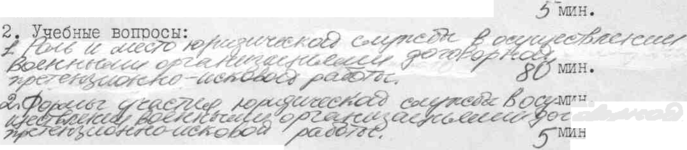 5 мин.
2. Учебные вопросы:
1. Роль и место юридической службы в осуществлении
военными организациями договорной
претензионно-исковой работы. 80 мин.
2. Формы участия юридической службы в осу мин
ществлении военными организациями дог
претензионно-исковой работы. 5 мин